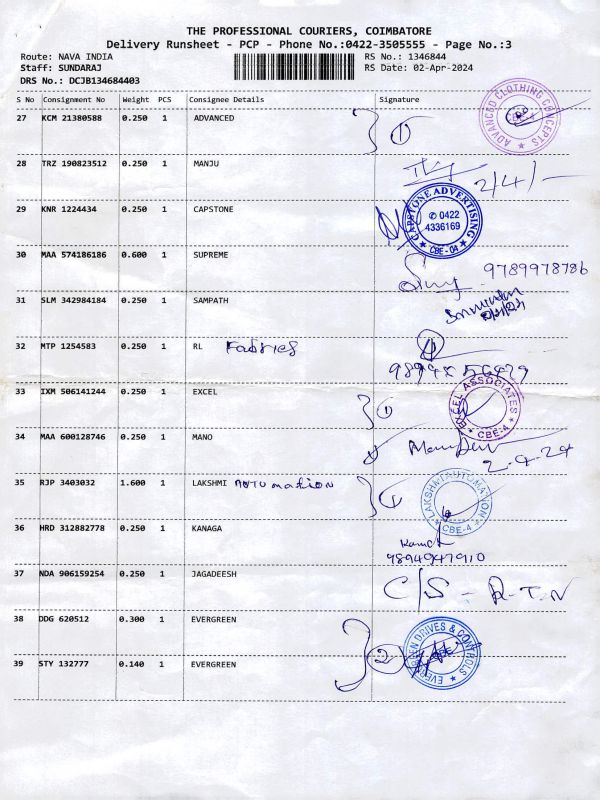 THE PROFESSIONAL COURIERS, COIMBATORE
Delivery Runsheet - PCP - Phone No.:0422-3505555 - Page No.:3
Route: NAVA INDIA RS No.: 1346844
Staff: SUNDARAJ RS Date: 02-Apr-2024
DRS No.: DCJB134684403
S No Consignment No Weight PCS Consignee Details Signature
27 KCM 21380588 0.250 1 ADVANCED 1 ADVANCED CLOTHING CONCEPTS
28 TRZ 190823512 0.250 1 MANJU 2/4/-
29 KNR 1224434 0.250 1 CAPSTONE CAPSTONE ADVERTISING ✆ 0422 4336169 CBE-04
30 MAA 574186186 0.600 1 SUPREME 9789978786
31 SLM 342984184 0.250 1 SAMPATH
32 MTP 1254583 0.250 1 RL Fabrics
33 IXM 506141244 0.250 1 EXCEL 1 EXCEL ASSOCIATES CBE-4
34 MAA 600128746 0.250 1 MANO 2-4-24
35 RJP 3403032 1.600 1 LAKSHMI AUTOmation 1 LAKSHMI AUTOMATION CBE-4
36 HRD 312882778 0.250 1 KANAGA 9894947910
37 NDA 906159254 0.250 1 JAGADEESH C/S - R.T.N
38 DDG 620512 0.300 1 EVERGREEN 2 EVERGREEN DRIVES & CONTROLS
39 STY 132777 0.140 1 EVERGREEN